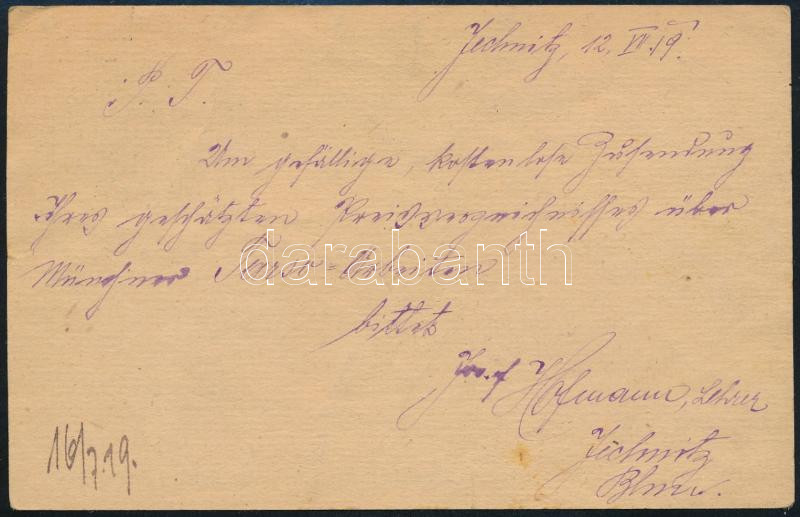 Jechnitz, 12. VII. 19.
P. T.
Um gefällige, kostenlose Zusendung
Ihres geschätzten Preisverzeichnisses über
Münchner "Tarso-Arbeiten"
bittet
Josef Hofmann, Lehrer
Jechnitz
16/7.19.
darabanth